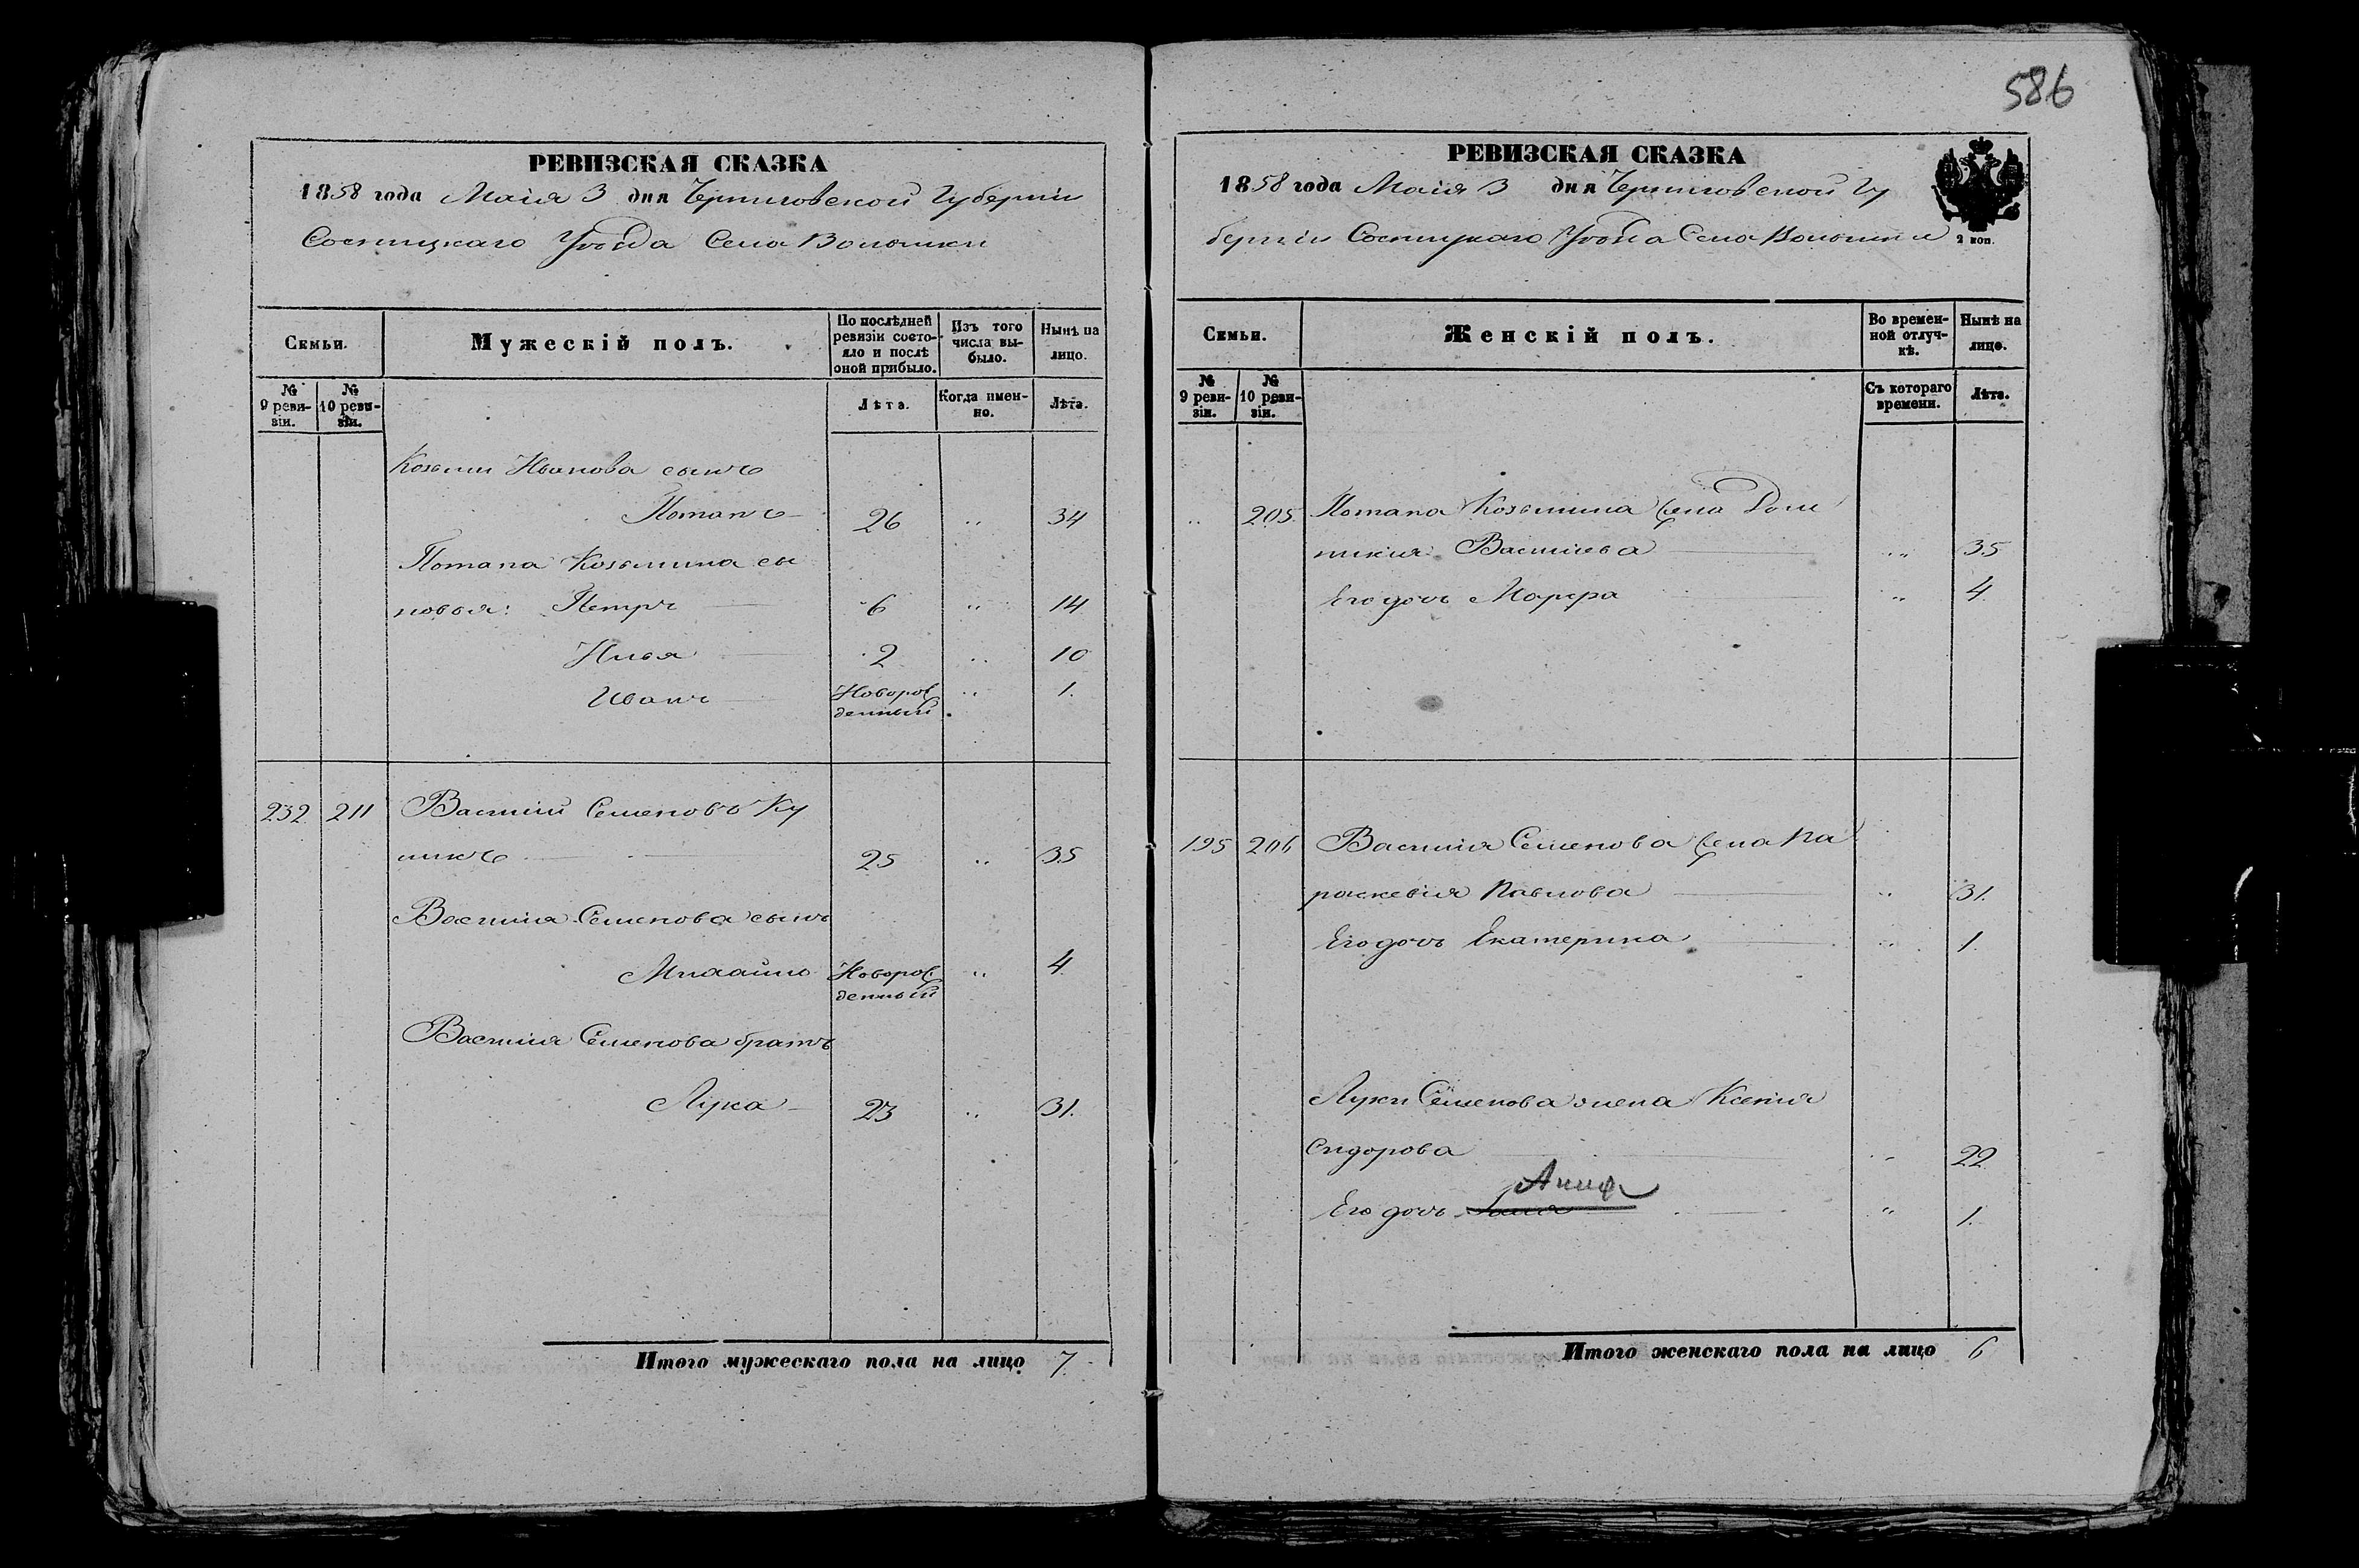 586
РЕВИЗСКАЯ СКАЗКА
1858 года Маія 3 дня Черниговской Губерніи
Сосницкаго Уѣзда Села Волынки
Семьи.
Мужескій полъ.
По послѣдней ревизіи состояло и послѣ оной прибыло.
Изъ того числа выбыло.
Нынѣ на лицо.
№ 9 ревизіи.
№ 10 ревизіи.
Лѣта.
Когда именно.
Лѣта.
Козьми Иванова сынъ
Потапъ 26 " 34
Потапа Козьмина сы
новья: Петръ 6 " 14
Илья 2 " 10
Иванъ Новорож " 1.
денный
232 211 Василій Семеновъ Ку
ликъ 25 " 35
Василія Семенова сынъ
Михайло Новорож " 4
денный
Василія Семенова братъ
Лука 23 " 31.
Итого мужескаго пола на лицо 7.
РЕВИЗСКАЯ СКАЗКА
1858 года Маія 3 дня Черниговской Гу
берніи Сосницкаго Уѣзда Села Волынки
2 коп.
Семьи.
Женскій полъ.
Во временной отлучкѣ.
Нынѣ на лицо.
№ 9 ревизіи.
№ 10 ревизіи.
Съ котораго времени.
Лѣта.
" 205. Потапа Козьмина жена Дом
никия Васильева " 35
Его дочь Марфа " 4
195 206 Василія Семенова жена Па
раскевія Павлова " 31.
Его дочь Екатерина " 1.
Луки Семенова жена Ксенія
Сидорова " 22
Анна
Его дочь " 1.
Итого женскаго пола на лицо 6